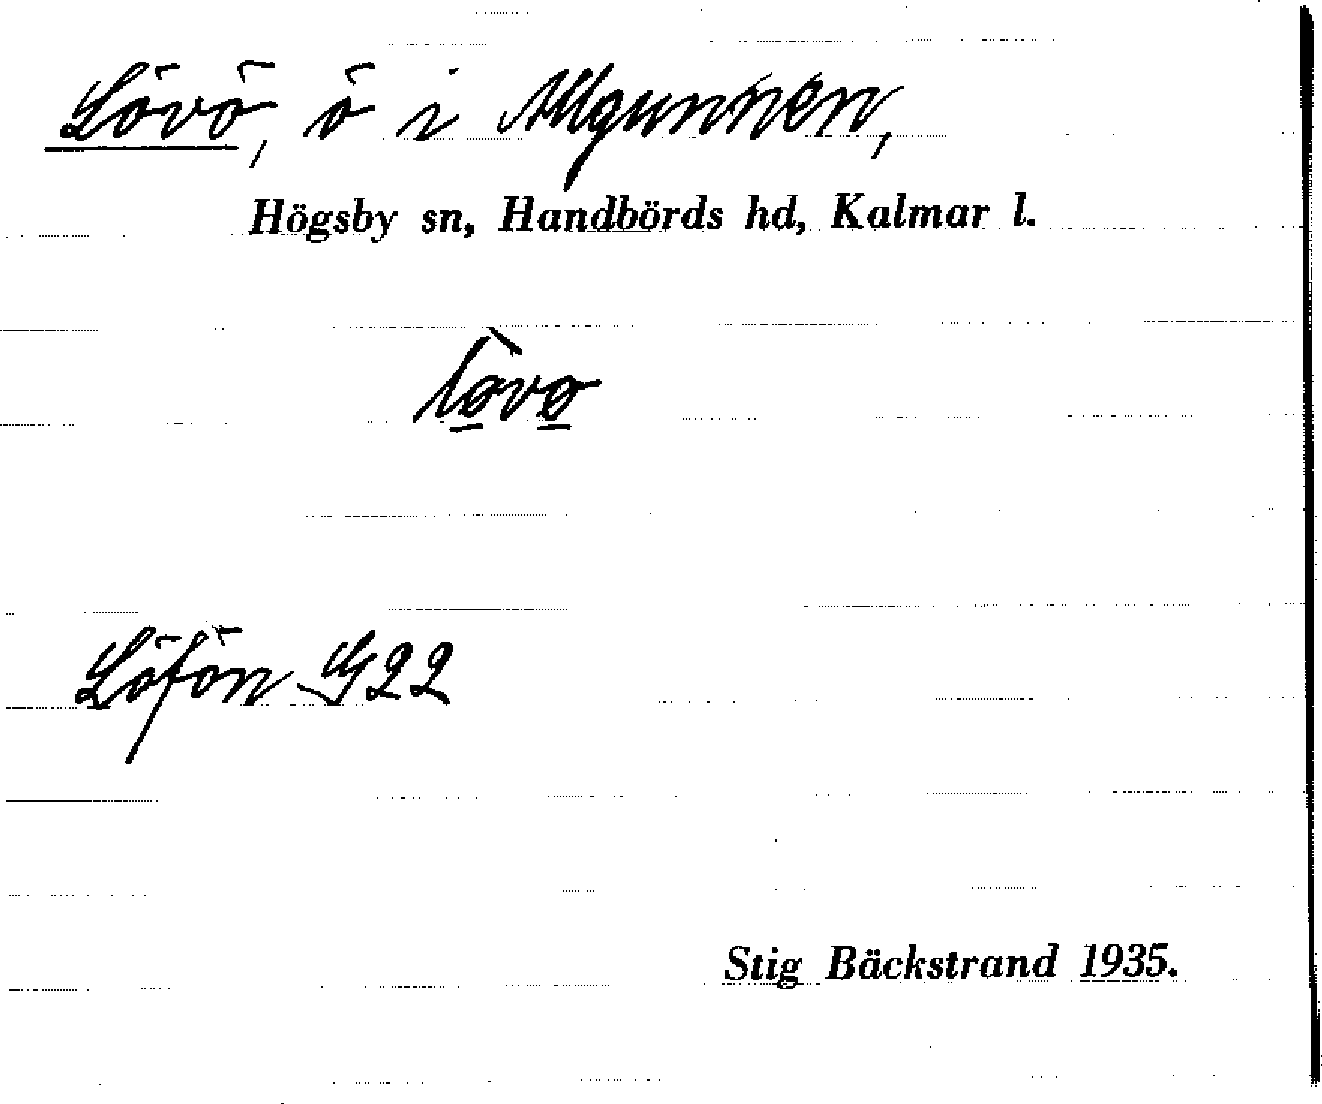 Lövö, ö i Allgunnen,
Högsby sn, Handbörds hd, Kalmar l.
Löfön G22
Stig Bäckstrand 1935.